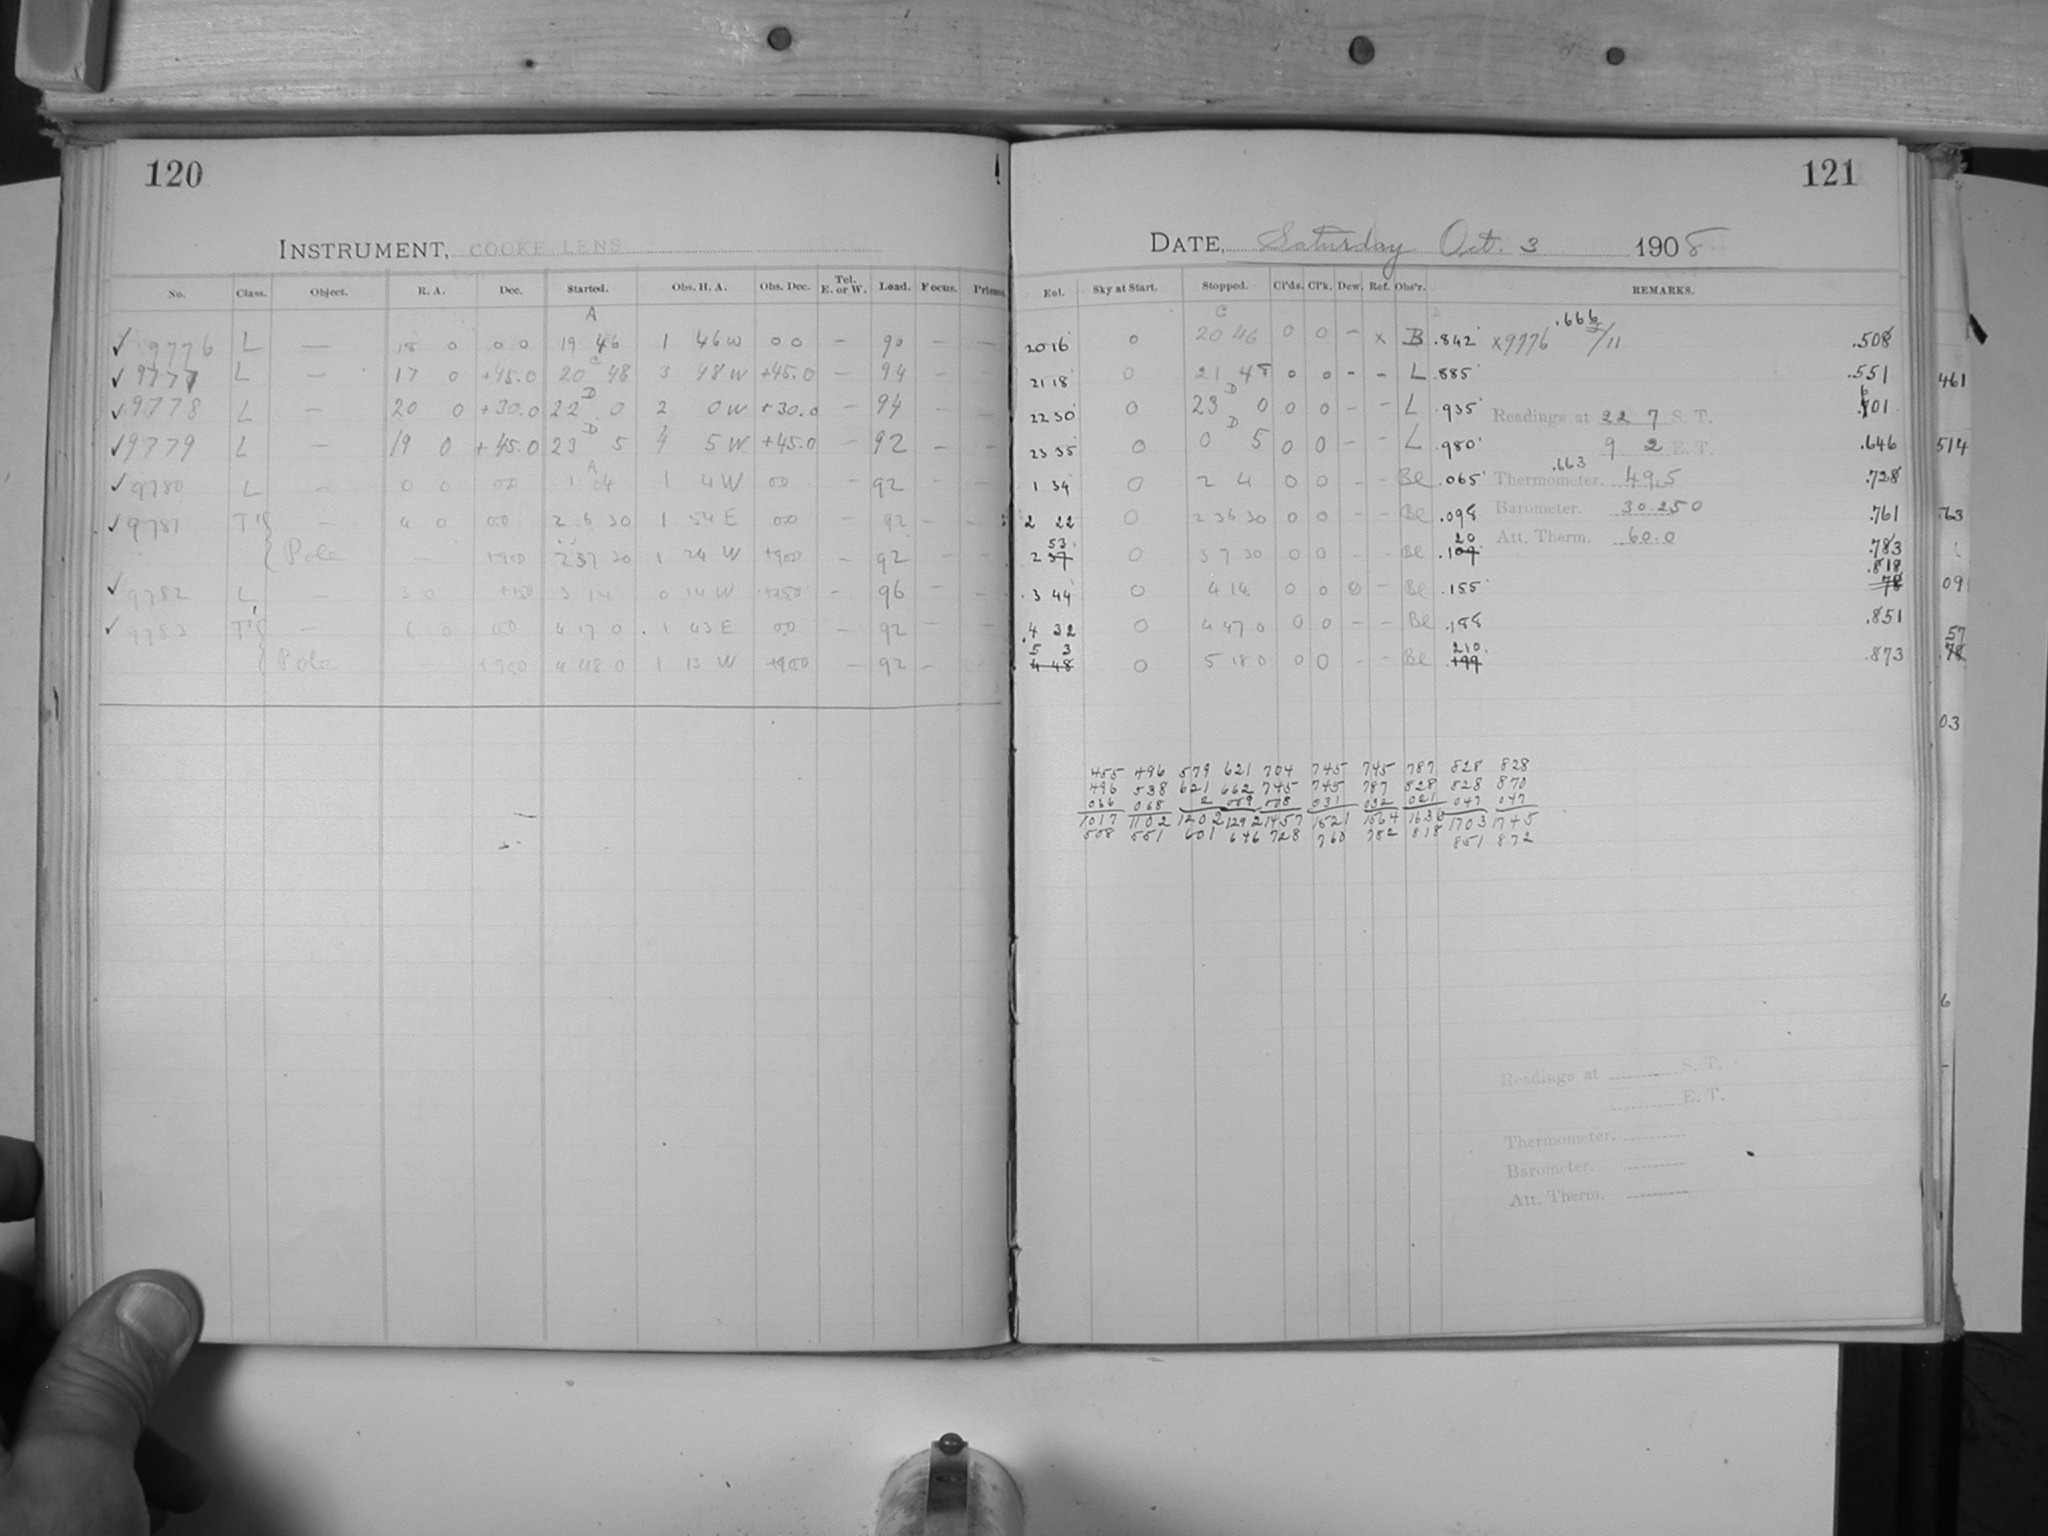 120
INSTRUMENT, COOKE LENS
No. Class. Object. R. A. Dec. Started. Obs. H. A. Obs. Dec. Tel. E. or W. Load. Focus. Prisms.
A
✓ 9776 L — 18 0 0 0 19 46 1 46 W 0 0 — 90 — —
C
✓ 9777 L — 17 0 +45.0 20 48 3 48 W +45.0 — 94 — —
D
✓ 9778 L — 20 0 +30.0 22 0 2 0 W +30.0 — 94 — —
D
✓ 9779 L — 19 0 +45.0 23 5 4 5 W +45.0 — 92 — —
A
✓ 9780 L — 0 0 00 1 4 1 4 W 00 — 92 — —
✓ 9781 T's — 4 0 00 2 6 30 1 54 E 00 — 92 — —
Pole — +900 2 37 30 1 24 W +900 — 92 — —
✓ 9782 L — 3 0 +150 3 14 0 14 W +150 — 96 — —
✓ 9783 T's — 6 0 00 4 17 0 1 43 E 00 — 92 — —
Pole — +900 4 48 0 1 13 W +900 — 92 — —
121
DATE, Saturday Oct. 3 1908
Ext. Sky at Start. Stopped. Cl'ds. Cl'k. Dew. Ref. Obs'r. REMARKS.
C
20 16 0 20 46 0 0 — x B .842 x9776 .666 /11 .508
21 18 0 21 48 0 0 — — L .885 .551
D
22 30 0 23 0 0 0 — — L .935 Readings at 22 7 S. T. .601
D
23 35 0 0 5 0 0 — — L .980 9 2 E. T. .646
.663
1 34 0 2 4 0 0 — — Be .065 Thermometer. 49.5 .728
2 22 0 2 36 30 0 0 — — Be .098 Barometer. 30.250 .761
53 20
2 37 0 3 7 30 0 0 — — Be .109 Att. Therm. 60.0 .783
.818
3 44 0 4 14 0 0 0 — Be .155 78
4 32 0 4 47 0 0 0 — — Be .188 .851
5 3 210
4 48 0 5 18 0 0 0 — — Be .199 .873
461
514
63
09
57
78
03
6
455 496 579 621 704 745 745 787 828 828
496 538 621 662 745 745 787 828 828 870
066 068 2 009 008 031 032 021 047 047
1017 1102 1202 1292 1457 1521 1564 1636 1703 1745
508 551 601 646 728 760 782 818 851 872
Readings at S. T.
E. T.
Thermometer.
Barometer.
Att. Therm.